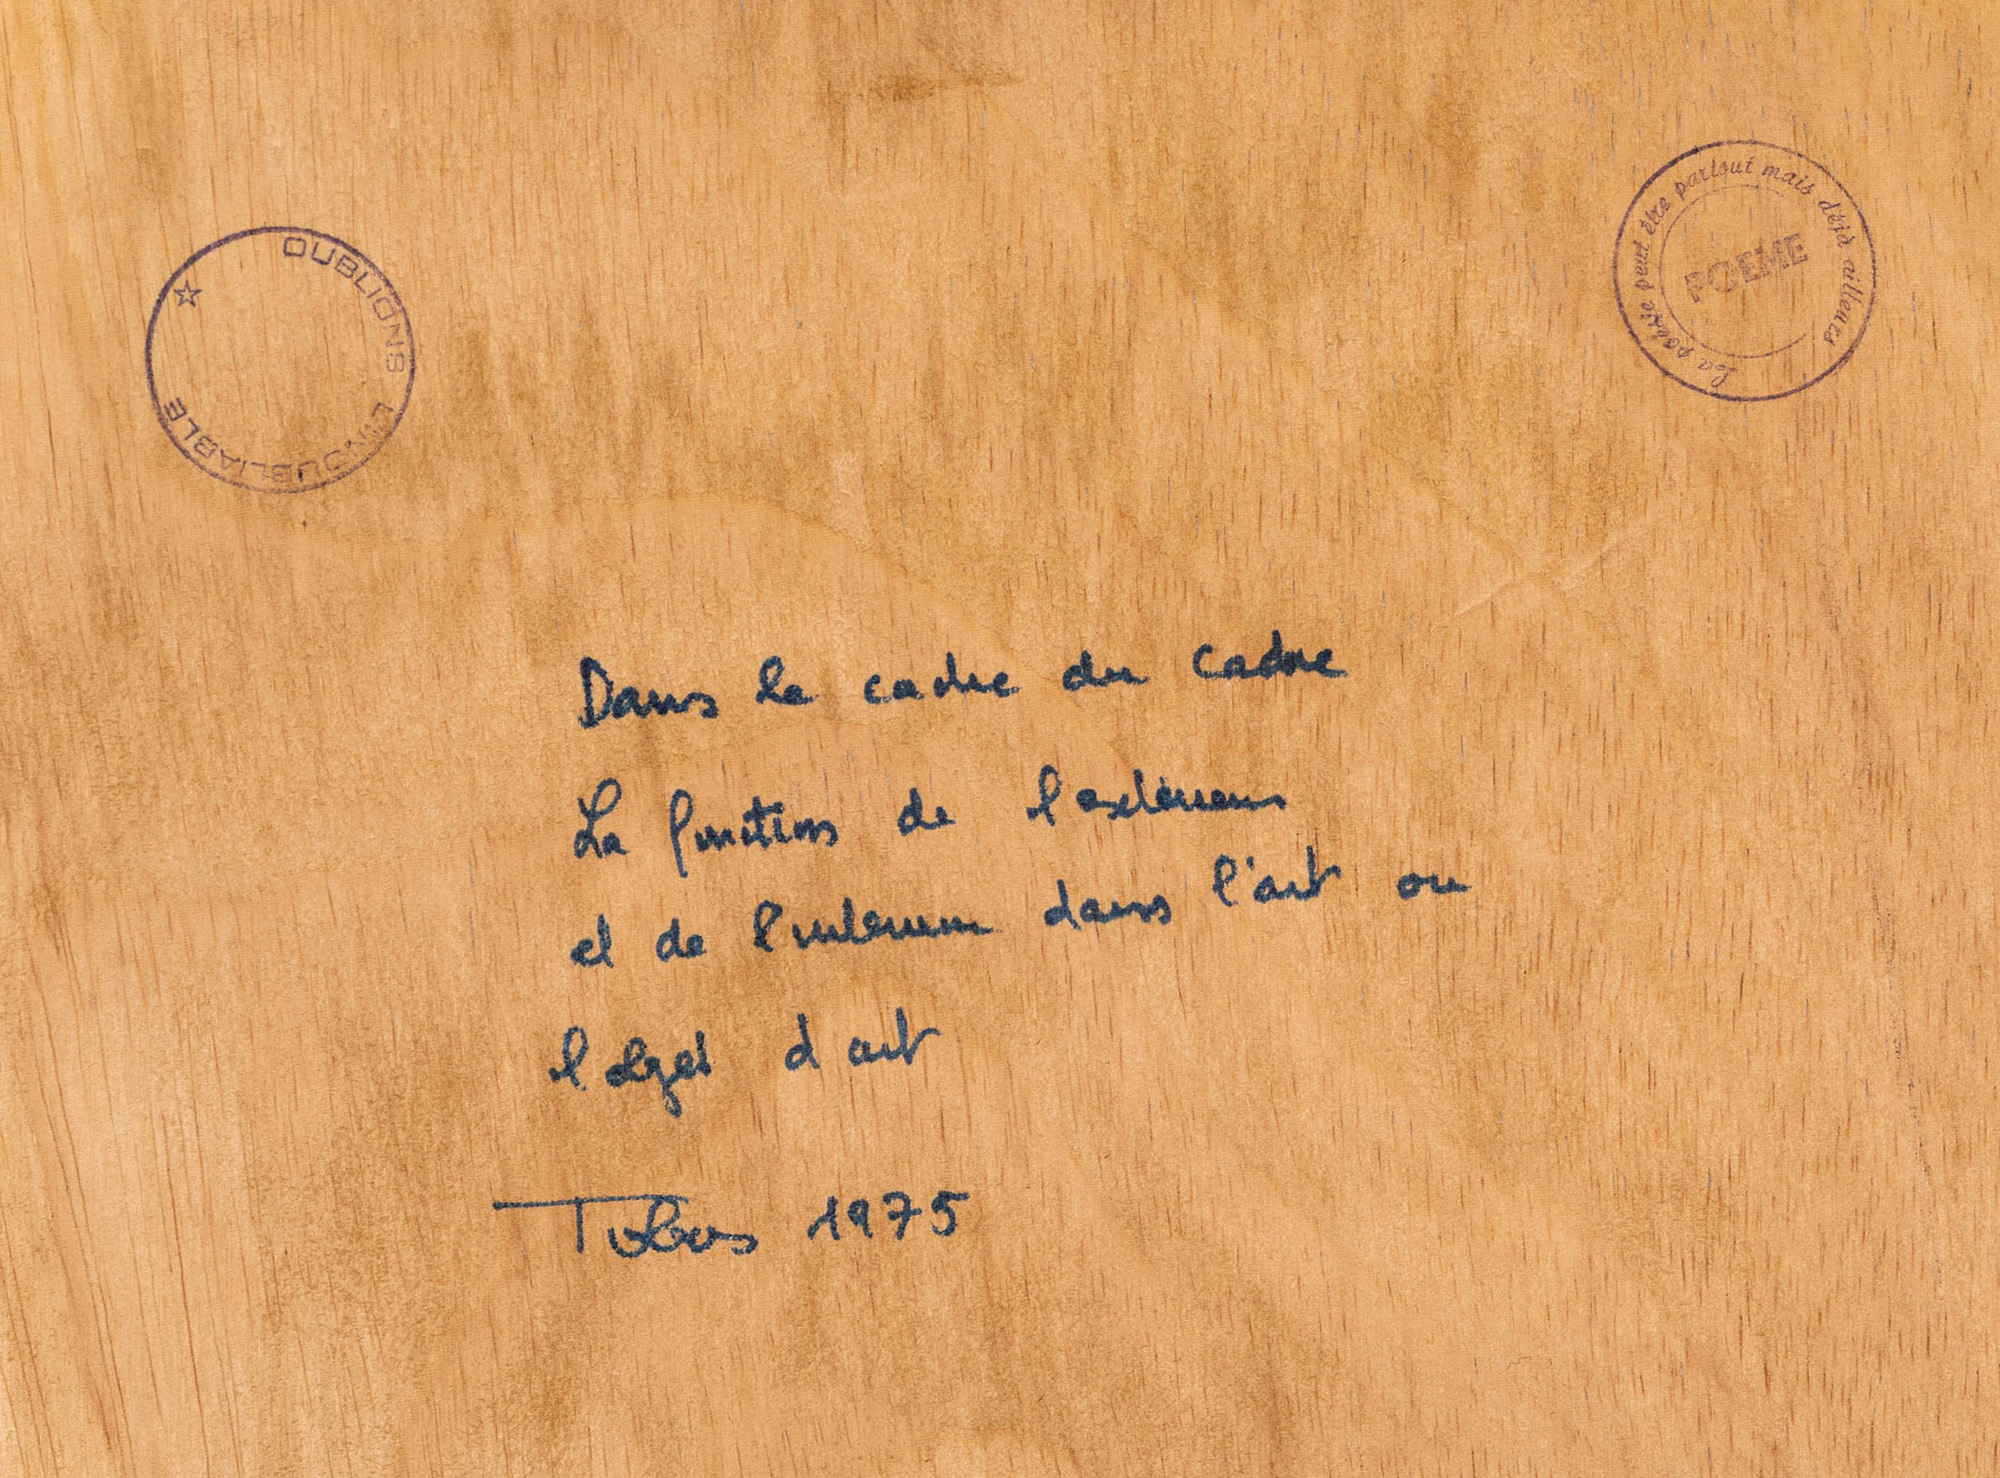 OUBLIONS L'INOUBLIABLE
La poésie peut être partout mais déjà ailleurs
POEME
Dans le cadre du cadre
La fonction de l'exterieur
et de l'interieur dans l'art ou
l objet d art
1975